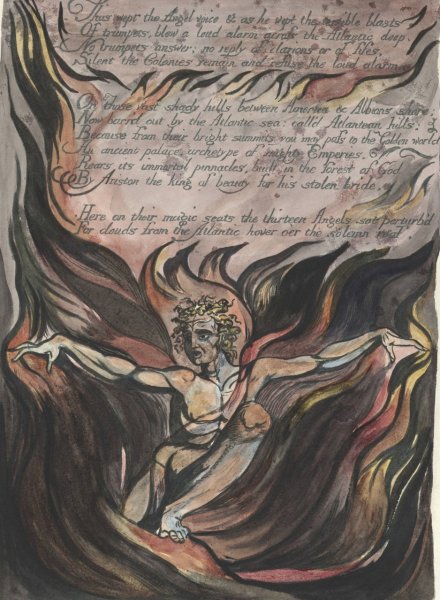 Thus wept the Angel voice & as he wept the terrible blasts
Of trumpets, blew a loud alarm across the Atlantic deep.
No trumpets answer; no reply of clarions or of fifes,
Silent the Colonies remain and refuse the loud alarm.
On those vast shady hills between America & Albions shore;
Now barr'd out by the Atlantic sea: call'd Atlantean hills:
Because from their bright summits you may pass to the Golden world
An ancient palace, archetype of mighty Emperies,
Rears its immortal pinnacles, built in the forest of God
By Ariston the king of beauty for his stolen bride,
Here on their magic seats the thirteen Angels sat perturb'd
For clouds from the Atlantic hover o'er the solemn roof.